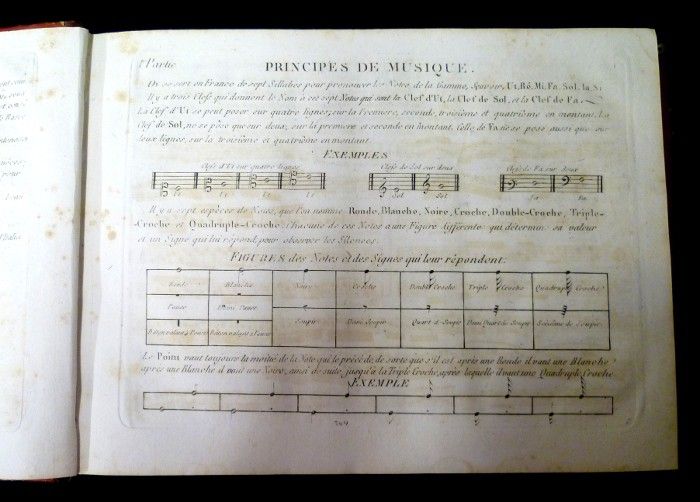 1re Partie
PRINCIPES DE MUSIQUE.
On se sert en France de sept Sillabes pour prononcer les Notes de la Gamme, Sçavoir, Ut, Ré, Mi, Fa, Sol, la, Si.
Il y a trois Clefs qui donnent le Nom à ces sept Notes qui sont la Clef d'Ut, la Clef de Sol, et la Clef de Fa.
La Clef d'Ut se peut poser sur quatre lignes; sur la Premiere, seconde, troisième et quatrième en montant. La
Clef de Sol, ne se pose que sur deux, sur la premiere et seconde en montant. Celle de Fa se pose aussi que sur
deux lignes, sur la troisième et quatrième en montant.
EXEMPLES
Clefs d'Ut sur quatre lignes Clefs de Sol sur deux Clefs de Fa sur deux
Ut Ut Ut Ut Sol Sol Fa Fa
Il y a sept espèces de Notes, que l'on nomme Ronde, Blanche, Noire, Croche, Double-Croche, Triple-
Croche et Quadruple-Croche; Chacune de ces Notes a une Figure différente qui détermine sa valeur
et un Signe qui lui répond, pour observer les Silences.
FIGURES des Notes et des Signes qui leur répondent.
Ronde Blanche Noire Croche Double Croche Triple Croche Quadruple Croche
Pause Demi Pause Soupir Demi Soupir Quart de Soupir Demi Quart de Soupir Seizième de Soupir
Le Point vaut toujours la moitié de la Note qui le précède, de sorte que s'il est après une Ronde il vaut une Blanche,
après une Blanche il vaut une Noire, ainsi de suite, jusqu'à la Triple Croche, après laquelle il vaut une Quadruple Croche
EXEMPLE